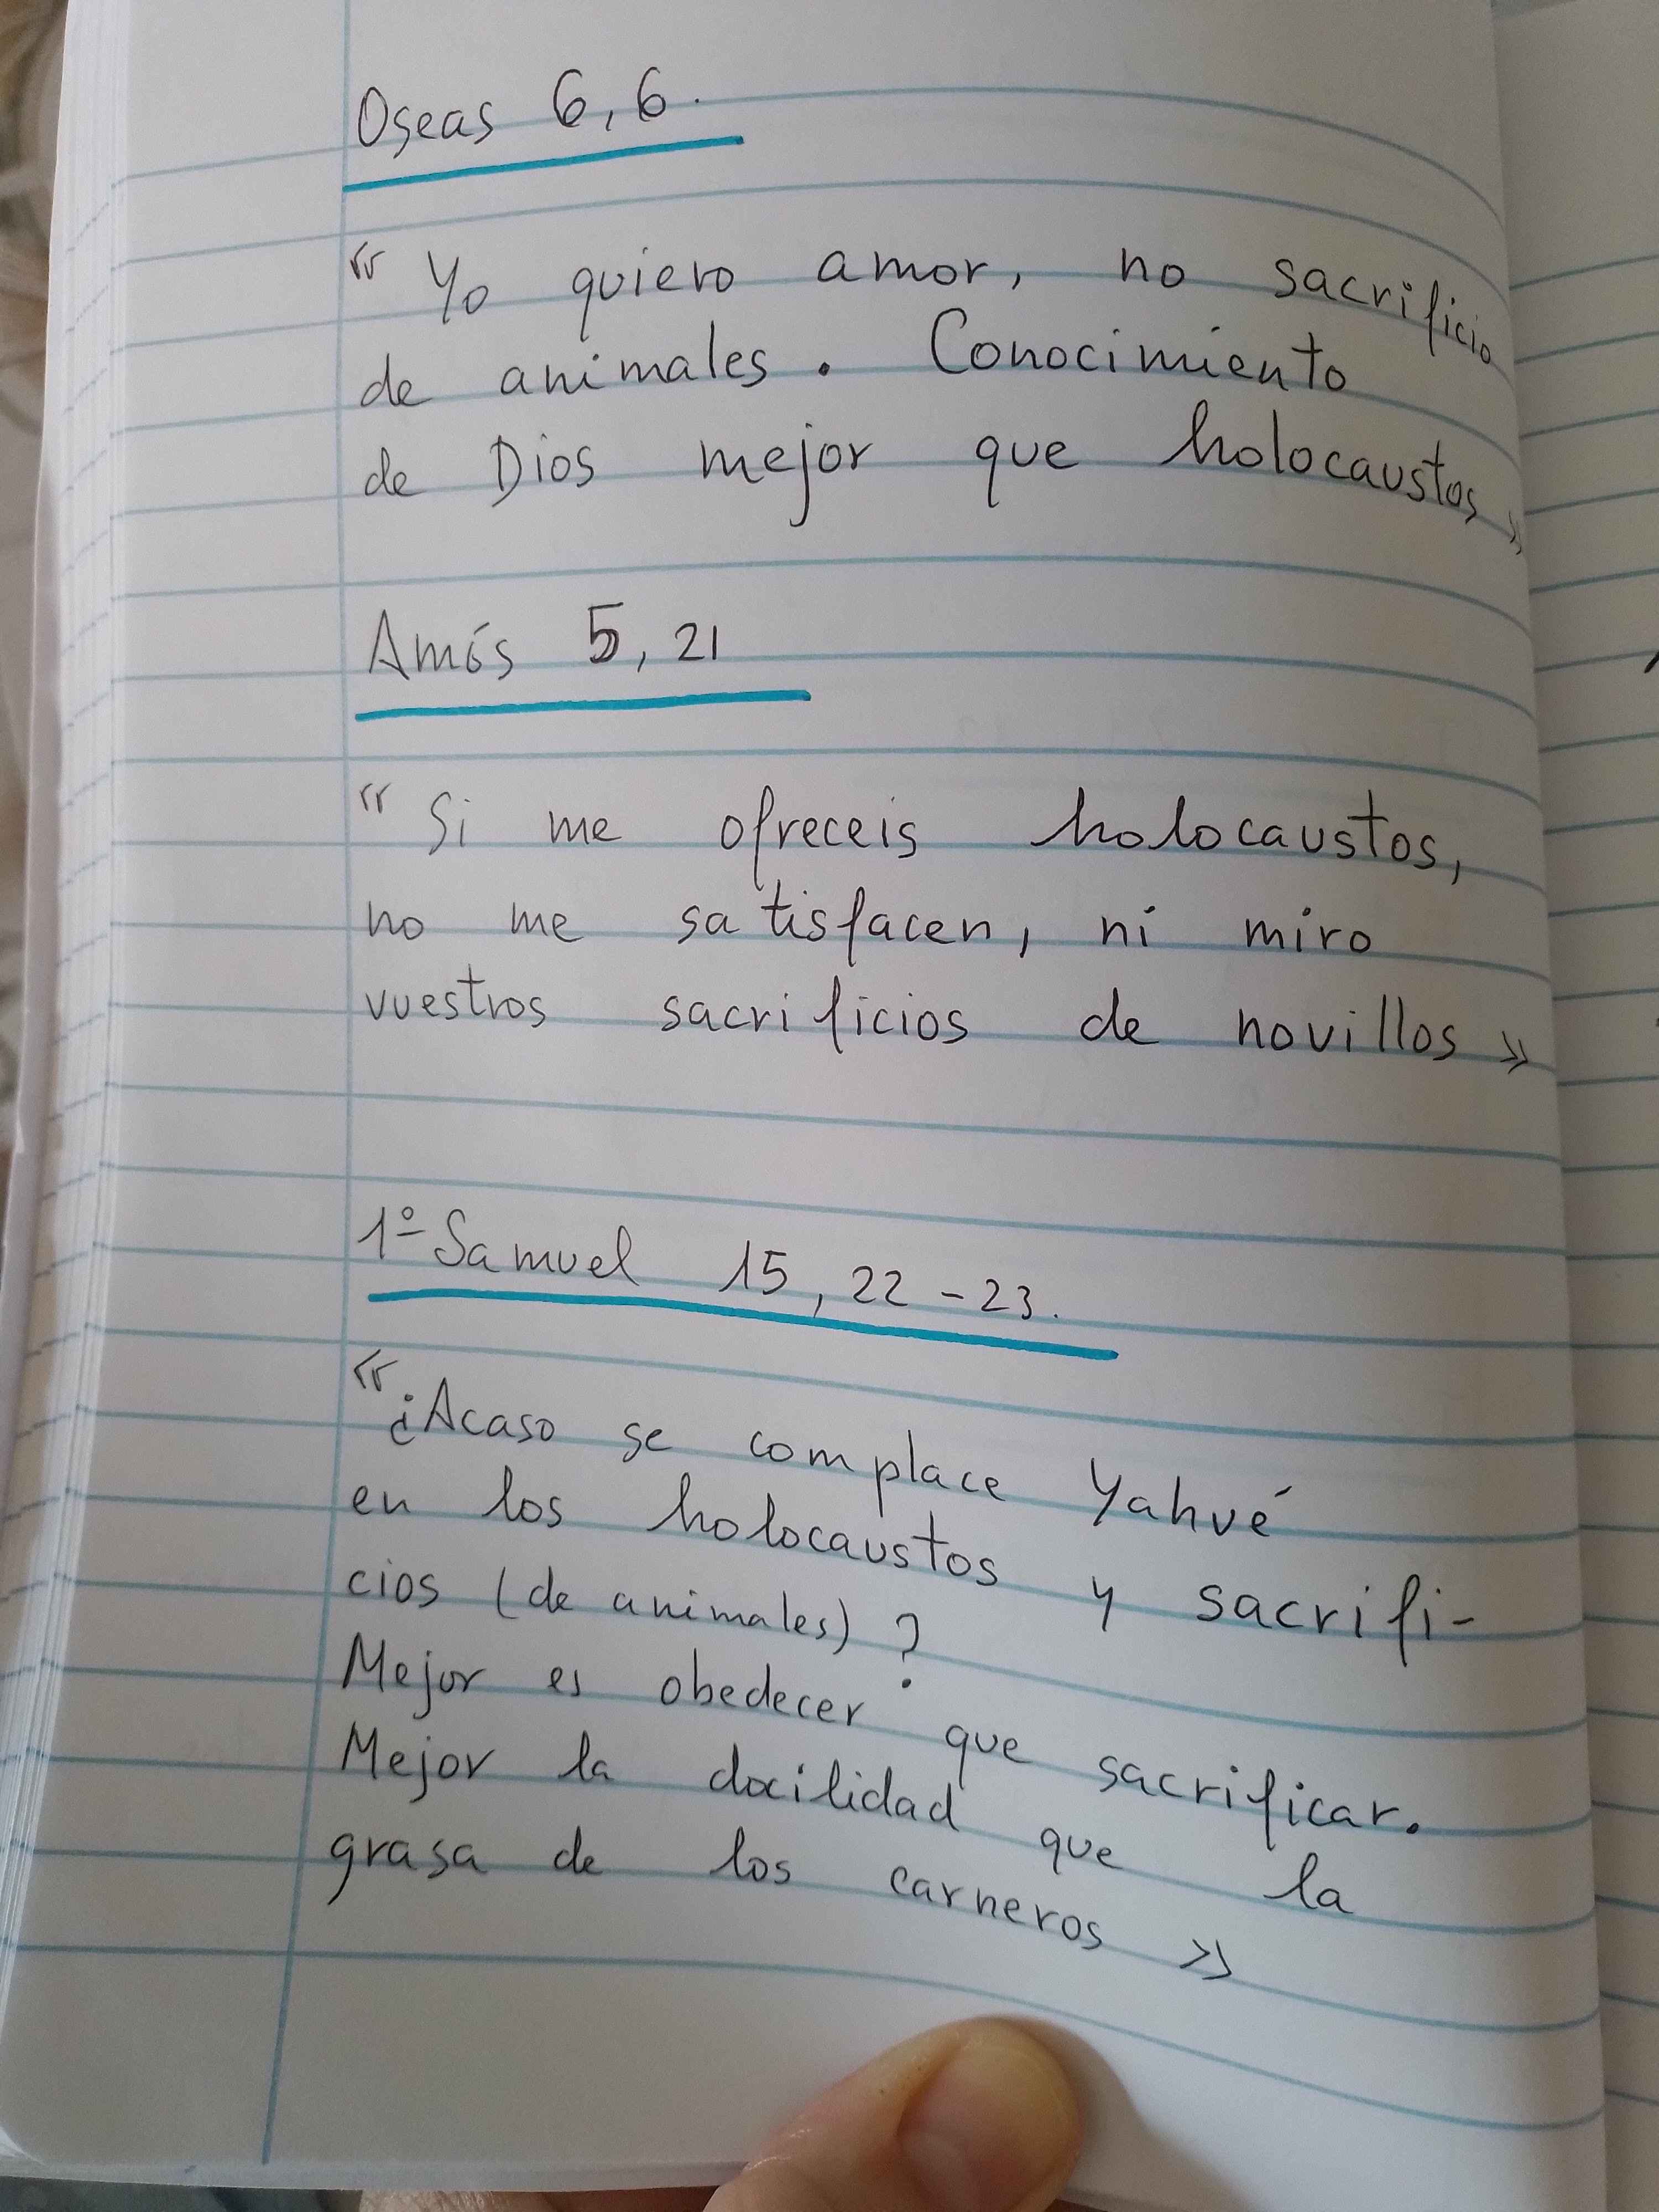 Oseas 6, 6.
« Yo quiero amor, no sacrificio
de animales. Conocimiento
de Dios mejor que holocaustos »
Amós 5, 21
« Si me ofreceis holocaustos,
no me satisfacen, ni miro
vuestros sacrificios de novillos »
1º Samuel 15, 22 - 23.
« ¿Acaso se complace Yahvé
en los holocaustos y sacrifi-
cios (de animales) ?
Mejor es obedecer que sacrificar.
Mejor la docilidad que la
grasa de los carneros »